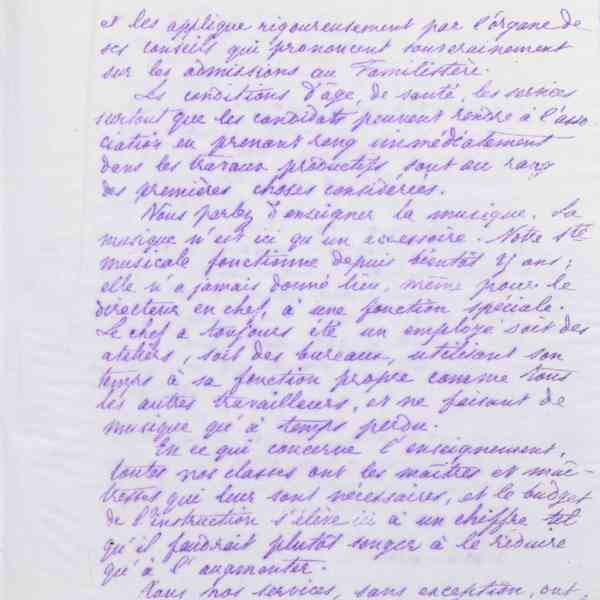 et les applique rigoureusement par l'organe de
ses conseils qui prononcent souverainement
sur les admissions au Familistère.
Les conditions d'âge, de santé, les services
surtout que les candidats peuvent rendre à l'asso-
ciation en prenant rang immédiatement
dans les travaux productifs, sont au rang
des premières choses considérées.
Vous parlez d'enseigner la musique. La
musique n'est ici qu'un accessoire. Notre Sté
musicale fonctionne depuis bientôt ans ;
elle n'a jamais donné lieu, même pour le
directeur en chef, à une fonction spéciale.
Le chef a toujours été un employé soit des
ateliers, soit des bureaux, utilisant son
temps à sa fonction propre comme tous
les autres travailleurs, et ne faisant de
musique qu'à temps perdu.
En ce qui concerne l'enseignement,
toutes nos classes ont les maîtres et maî-
tresses qui leur sont nécessaires, et le budget
de l'instruction s'élève ici à un chiffre tel
qu'il faudrait plutôt songer à le réduire
qu'à l'augmenter.
Tous nos services, sans exception, ont,